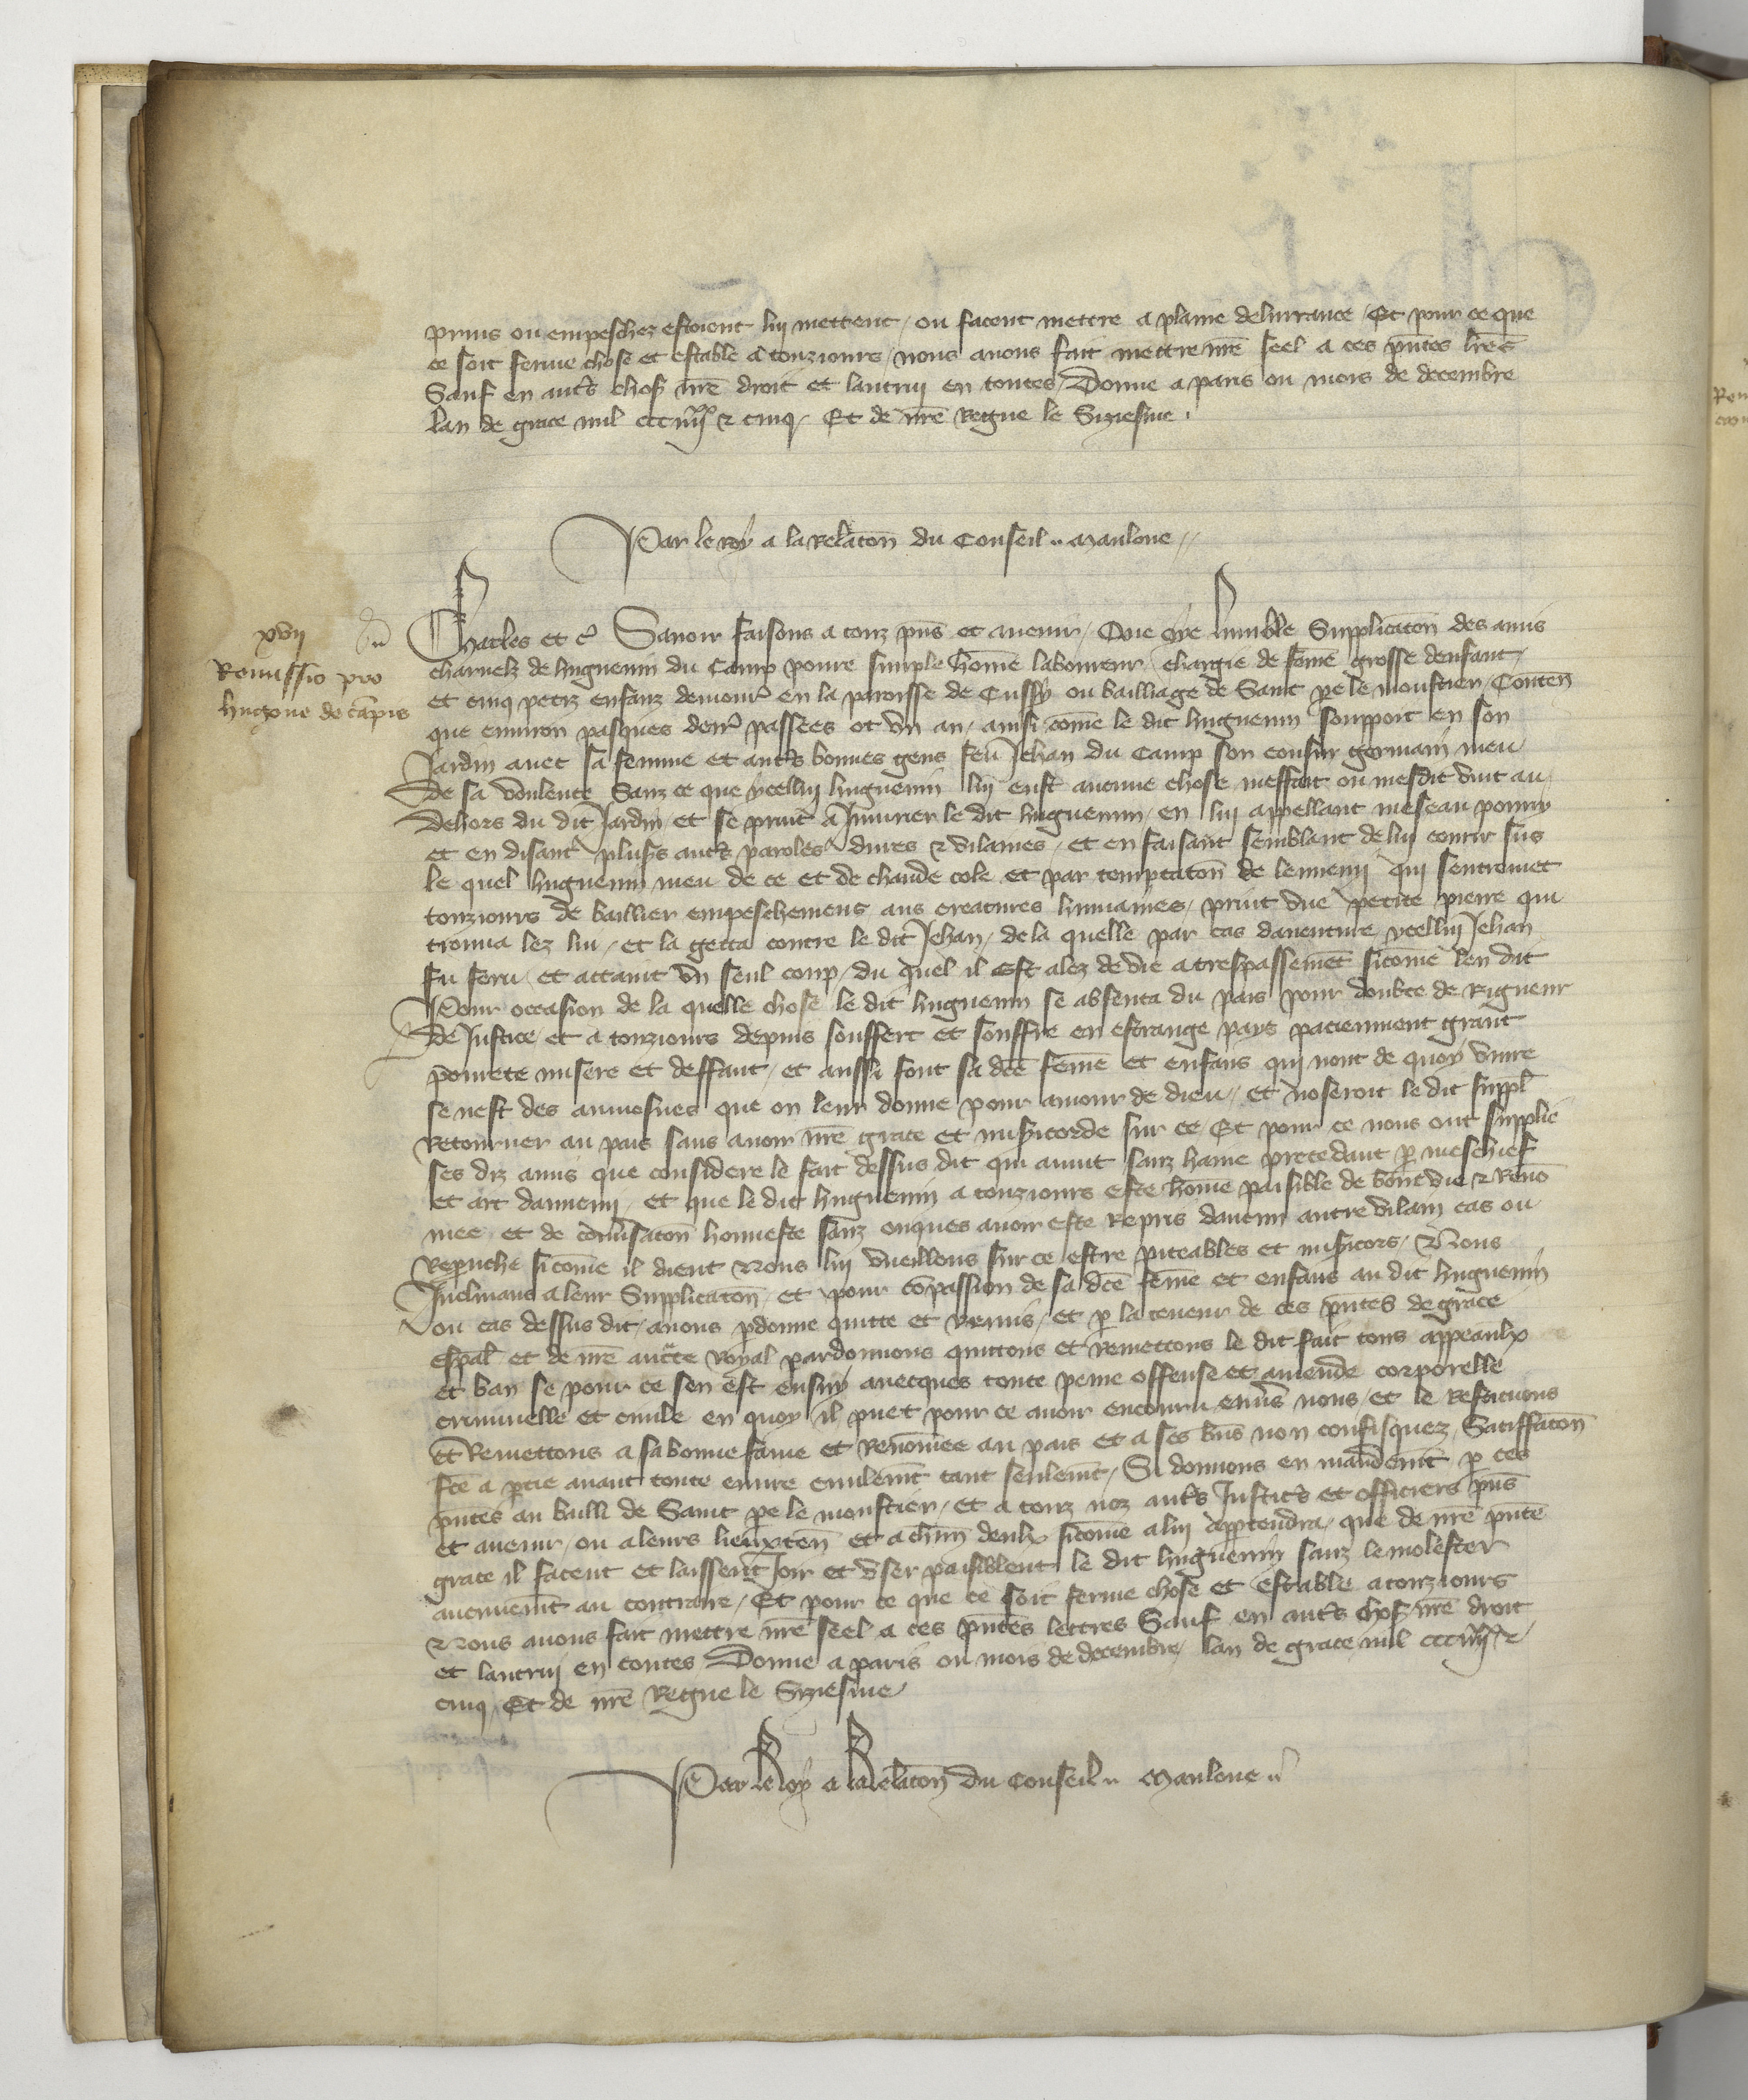 prins ou empeschez estoient lui mettent / ou facent mettre a plaine deliurance / Et pour ce que
ce soit ferme chose et estable a touzjours / nous auons fait mettre nr̄e seel a ces pn̄tes lr̄es
Sauf en autr̄s chos̄ nr̄e droit et lautruy en toutes / Donne a paris ou mois de decembre
lan de grace mil ccc iiiixx & cinq / Et de nr̄e Regne le Siziesme /
Par le roy a la Relac̄on du Conseil .. Maulone //
xvii
Remissio pro
hugone de cāpis
Charles et c̄ Sauoir faisons a touz pn̄s et auenir / Que oye humble Supplicac̄on des amis
charnelz de huguenin du Camp poure simple hōme laboureur / chargie de fēme grosse denfant /
et cinq petiz enfanz demour̄ en la paroisse de Cussy ou bailliage de Saint pe le moustier / Conten̄
que enuiron pasques derr̄ passees ot vn an / ainsi cōme le dit huguenin souppoit en son
Jardin auec sa femme et autr̄s bonnes gens feu Jehan du Camp son cousin germain meu
de sa voulente Sanz ce que ycellui huguenin lui eust aucune chose meffait ou mesdit vint au
dehors du dit Jardin / et se print a Iniurier le dit huguenin / en lui appellant meseau pourry
et en disant plus̄s autr̄s paroles dures & vilaines / et en faisant semblant de lui courir sus
le quel huguenin meu de ce et de chaude cole et par temptac̄on de lennemi qui sentremet
touzjours de baillier empeschemens aus creatures humaines / print vne petite pierre qui
trouua lez lui / et la getta contre le dit Jehan / de la quelle par cas dauenture ycellui Jehan
fu feru / et attaint vn seul coup / du quel il est alez de vie a trespassemēt sicōme len dit
Pour occasion de la quelle chose le dit huguenin se absenta du pais pour doubte de Rigueur
de Justice / et a touzjours depuis souffert et souffre en estrange pays paciemment grant
pourete misere et deffaut / et aussi font sa dc̄e fēme et enfans qui nont de quoy viure
se nest des aumosnes que on leur donne pour amour de dieu / et noseroit le dit suppl̄
Retourner au pais sans auoir nr̄e grace et mis̄icorde sur ce / Et pour ce nous ont supplie
ses diz amis que considere le fait dessus dit qui auint sanz haine precedant p̄ meschief
et art dannemi / et que le dit huguenin a touzjours este hōme paisible de bonē vie & Renō
mee et de conūsac̄on honneste sanz onques auoir este Repris daucun autre vilain cas ou
Reprouche sicōme il dient Nous lui vueillons sur ce estre piteables et mis̄icors / Nous
Inclinans a leur Supplicac̄on / et pour cōpassion de sa dc̄e fēme et enfans au dit huguenin
ou cas dessus dit / auons p̄donne quitte et Remis / et p̄ la teneur de ces pn̄tes de grace
esp̄al et de nr̄e auct̄te Royal pardonnons quittons et Remettons le dit fait tous appeaulx
et ban se pour ce sen est ensuy auecques toute peine offense et amende corporelle
criminelle et ciuile en quoy il puet pour ce auoir encouru enuers nous / et le Restituons
et Remettons a sa bonne fame et Renōmee au pais et a ses bn̄s non confisquez / Satiffac̄on
fc̄e a p̄tie auant toute euure ciuilem̄t tant seulem̄t / Si donnons en mandem̄t p̄ ces
pn̄tes au bailli de Saint pe le moustier / et a touz noz autr̄s Justic̄s et officiers pn̄s
et auenir / ou a leurs lieuxten̄ et a chūn deulx sicōme a lui app̄tendra / que de nr̄e pn̄te
grace il facent et laissent Joir et vser paisiblem̄t le dit huguenin sanz le molester
aucunem̄t au contraire / Et pour ce que ce soit ferme chose et estable a touzjours
Nous auons fait mettre nr̄e seel a ces pn̄tes lettres Sauf en autr̄s chos̄ nr̄e droit
et lautrui en toutes / Donne a paris ou mois de decembre / lan de grace mil ccc iiiixx &
cinq / Et de nr̄e Regne le Siziesme
Par le Roy a la Relac̄on du Conseil .. Maulone ..